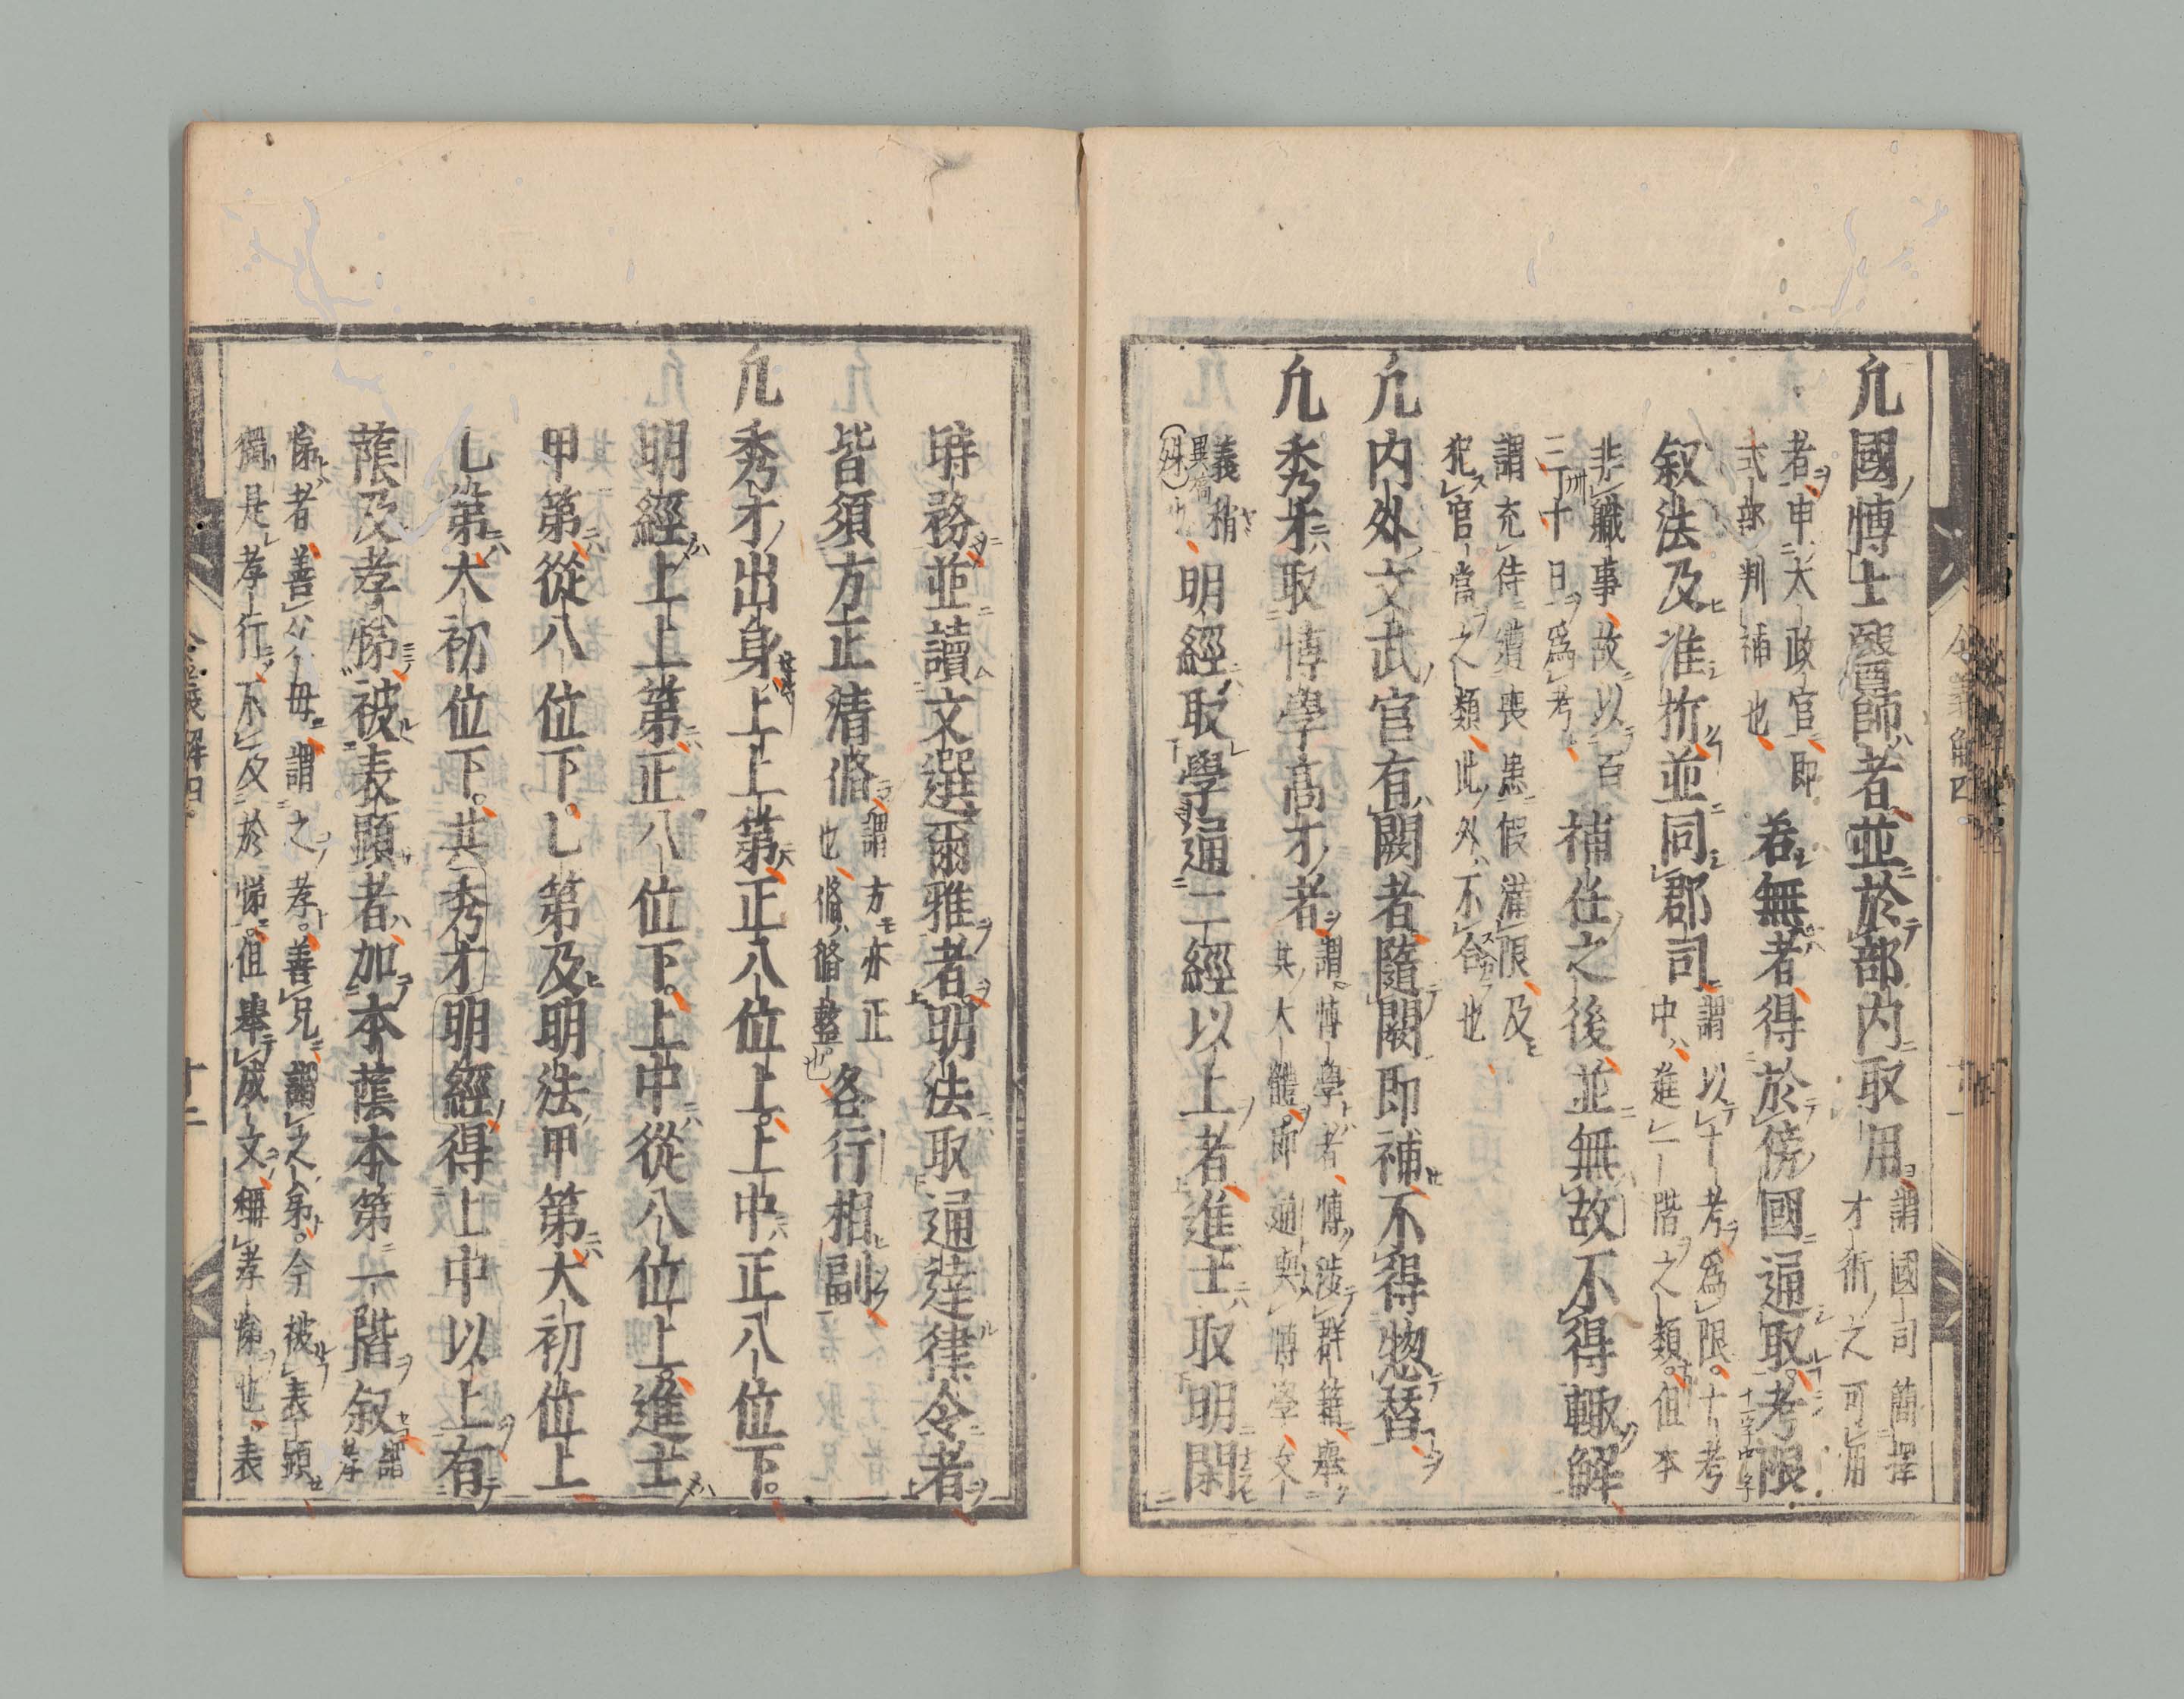 凡國博士醫師者並於部内取用謂國司簡擇才術之可用
者申太政官即式部判補也若無者得於傍國通取考限
叙法及准折並同郡司謂以十考爲限十考中進一階之類但本
非職事故以百三十日爲考補任之後並無故不得輙解
謂充侍遭喪患假滿限及犯官當之類此外不合也
凡内外文武官有闕者隨闕即補不得惣替
凡秀才取博學高才者謂博學者博渉群籍擧其大體即通奥博學文
義稍異也明經取學通二經以上者進士取明閑
時務並讀文選爾雅者明法取通達律令者
皆須方正清脩謂方亦正也脩脩整也各行相副
凡秀才出身上上第正八位上上中正八位下
明經上上第正八位下上中從八位上進士
甲第從八位下乚第及明法甲第大初位上
乚第大初位下其秀才明經得上中以上有
蔭及孝悌被表顯者加本蔭本第一階叙謂孝
悌者善父母謂之孝善兄謂之弟今被表顯獨是孝行不及於悌但擧成文稱孝悌也表
令義解四
十一
令義解四
十二